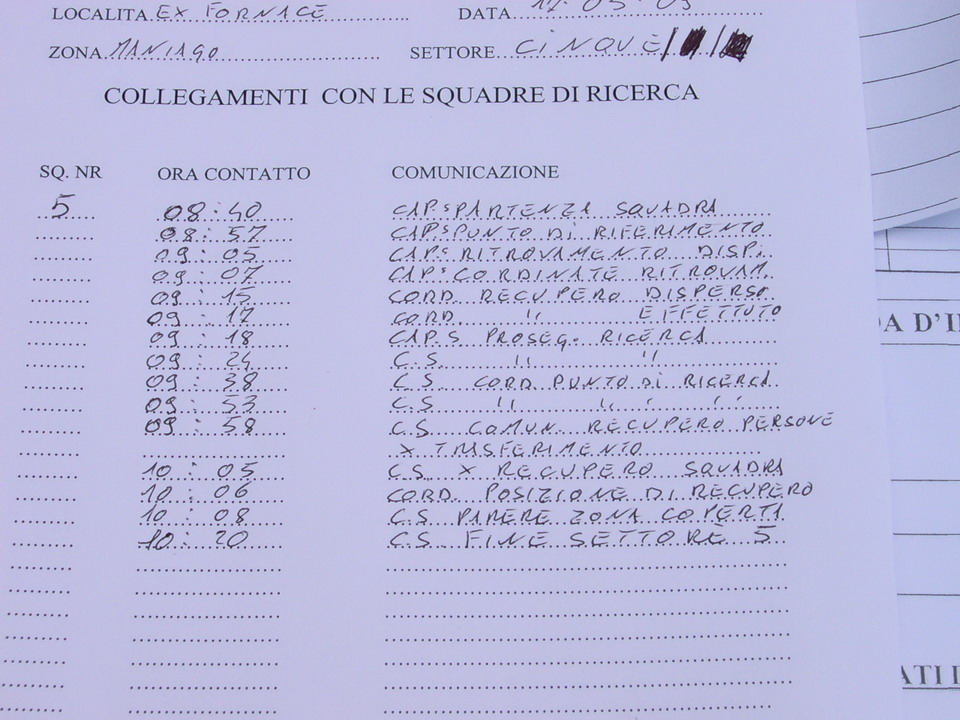 LOCALITA EX FORNACE DATA 17-05-03
ZONA MANIAGO SETTORE CINQUE/
COLLEGAMENTI CON LE SQUADRE DI RICERCA
SQ. NR ORA CONTATTO COMUNICAZIONE
5 08:40 CAP.S PARTENZA SQUADRA
08:57 CAP.S PUNTO DI RIFERIMENTO
09:05 CAP.S RITROVAMENTO DISP.
09:07 CAP.S CORDINATE RITROVAM.
09:15 CORD. RECUPERO DISPERSO
09:17 CORD " EFFETTUTO
09:18 CAP.S PROSEG. RICERCA
09:24 C.S. " "
09:38 C.S. CORD PUNTO DI RICERCA
09:53 C.S " " "
09:58 C.S COMUN. RECUPERO PERSONE
X TRASFERIMENTO
10:05 C.S X RECUPERO SQUADRA
10:06 CORD. POSIZIONE DI RECUPERO
10:08 C.S. PARERE ZONA COPERTA
10:20 C.S. FINE SETTORE 5
DA D'I
ATI